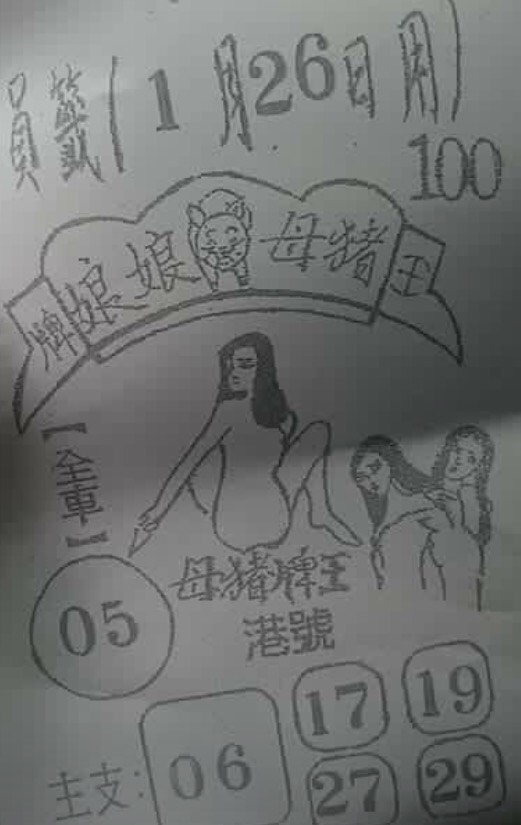 員籤(1月26日用)
100
牌娘娘母猪王
【全車】
05
母猪牌王
港號
17 19
主支: 06
27 29